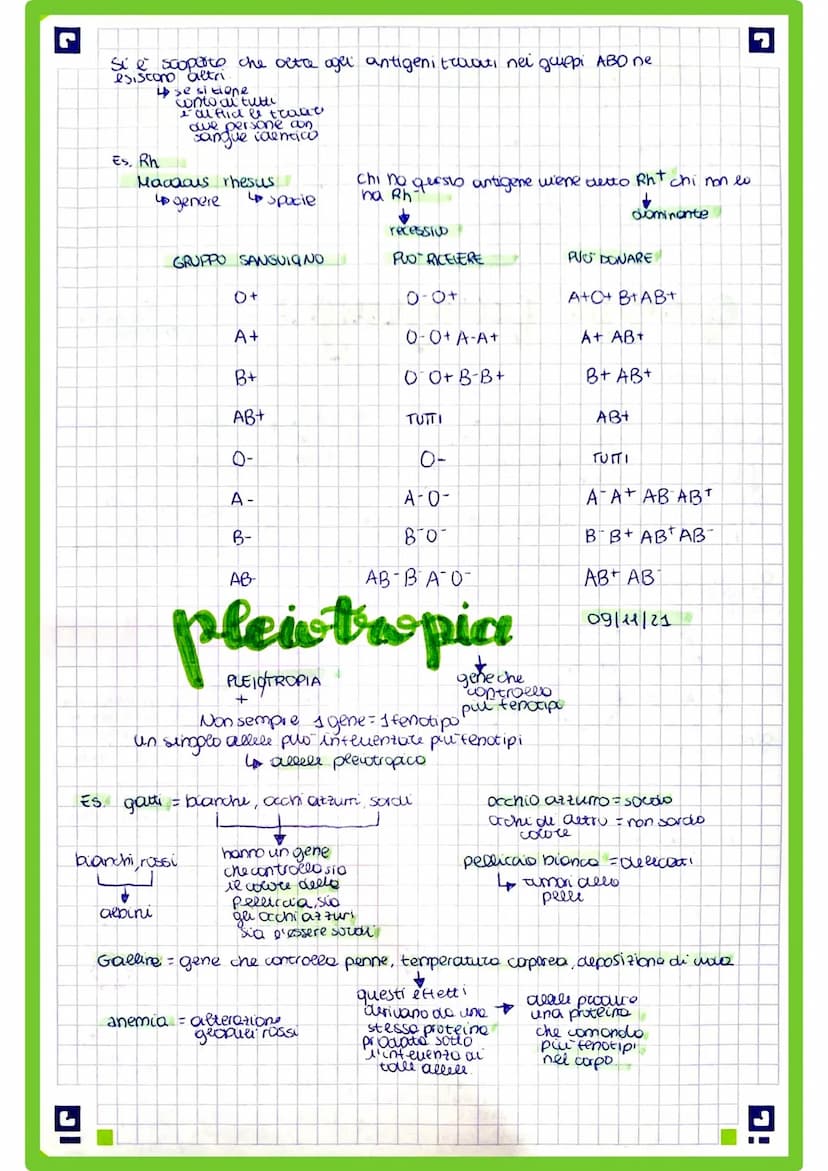 Si è scoperto che oltre agli antigeni trovati nei gruppi ABO ne
esistono altri
↳ se si tiene
conto di tutti
è difficile trovare
due persone con
sangue identico
Es. Rh
Macacus rhesus
↳ genere ↳ specie
Chi ha questo antigene viene detto Rh+ chi non lo
ha Rh-
↓ recessivo
↓ dominante
GRUPPO SANGUIGNO PUO' RICEVERE PUO' DONARE
O+ O-O+ A+O+ B+AB+
A+ O-O+ A-A+ A+ AB+
B+ O-O+ B-B+ B+ AB+
AB+ TUTTI AB+
O- O- TUTTI
A- A-O- A-A+ AB-AB+
B- B-O- B-B+ AB+AB-
AB- AB-B-A-O- AB+ AB-
pleiotropia
09/11/21
PLEIOTROPIA
+
↓
gene che
controlla
più fenotipi
Non sempre 1 gene = 1 fenotipo
un singolo allele può interventare più fenotipi
↳ allele pleiotropico
Es. gatti = bianche, occhi azzurri, sordi
occhio azzurro = sordo
occhi di altro = non sordo
colore
bianchi, rossi
↓
albini
hanno un gene
che controlla sia
il colore della
pelliccia, sia
gli occhi azzurri
sia l'essere sordi
pelliccia bianca = delicati
↳ tumori alla
pelle
Galline = gene che controlla penne, temperatura corporea, deposizione di uova
↓
questi effetti
derivano da una
stessa proteina
prodotta sotto
l'intevento di
tale allele
→ allele produce
una proteina
che comanda
più fenotipi
nel corpo
anemia = alterazione
globuli rossi